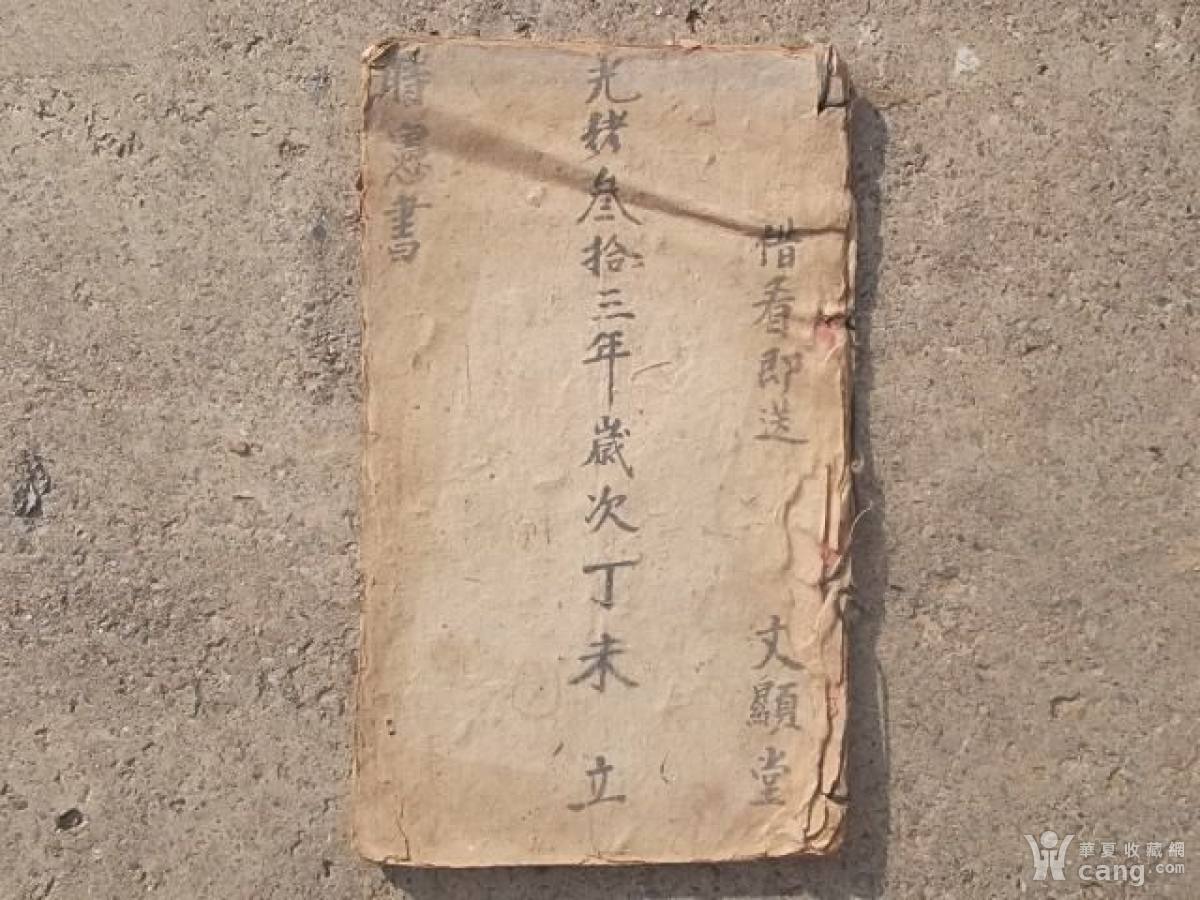 借看即送 文顯堂
光緒叁拾三年歲次丁未 立
時憲書
華夏收藏網
cang.com